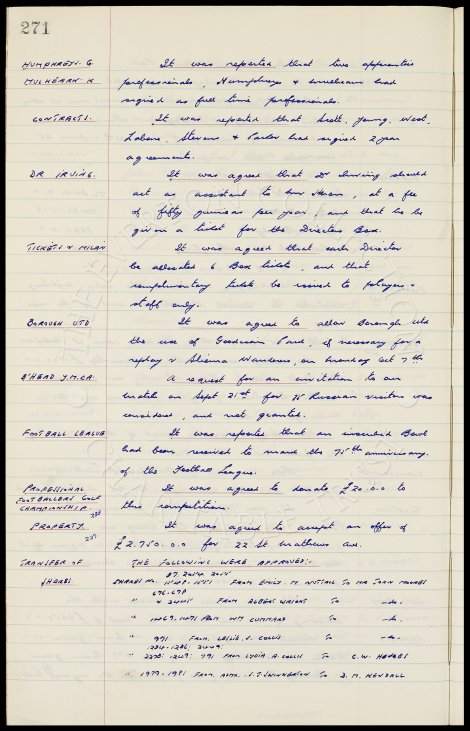 271
HUMPHREYS. G. It was reported that two apprentice
MULHEARN. K professionals, Humphreys & Mulhearn had
signed as full time professionals.
CONTRACTS. It was reported that Scott, Young, West,
Labone, Stevens & Parker had signed 2 year
agreements.
DR IRVING. It was agreed that Dr Irving should
act as assistant to at a fee
of fifty guineas per year, and that he be
given a ticket for the Directors Box.
TICKETS v MILAN It was agreed that each Director
be allocated 6 Box tickets, and that
complimentary tickets be issued to players &
staff only.
BOROUGH UTD It was agreed to allow Borough Utd
the use of Goodison Park, if necessary for a
replay v Sliema Wanderers, on Monday Oct 7th
B'HEAD Y.M.CA. A request for an invitation to our
match on Sept 21st for Russian visitors was
considered, and not granted.
FOOTBALL LEAGUE It was reported that an inscribed Bowl
had been received to mark the 75th anniversary.
of the Football League.
PROFESSIONAL It was agreed to donate £20.0.0 to
FOOTBALLERS GOLF this competition.
CHAMPIONSHIP.
PROPERTY. It was agreed to accept an offer of
£2.750.0.0 for 22 St Mathews Ave.
TRANSFER OF THE FOLLOWING WERE APPROVED:-
SHARES. SHARES No. FROM EMILY. M. NUTTALL TO MR JOHN MOORES
676-678
" & FROM ALBERT WRIGHT TO -do-
" 1469, 1471 FROM WM CUMMARD TO -do-
" 991 FROM. LESLIE. J. COLLIS TO -do-
" FROM LYDIA. A. COLLIS TO C.W. HODGES
" 1979-1981 FROM. S.T. SWINNERTON TO D. M. KENDALL